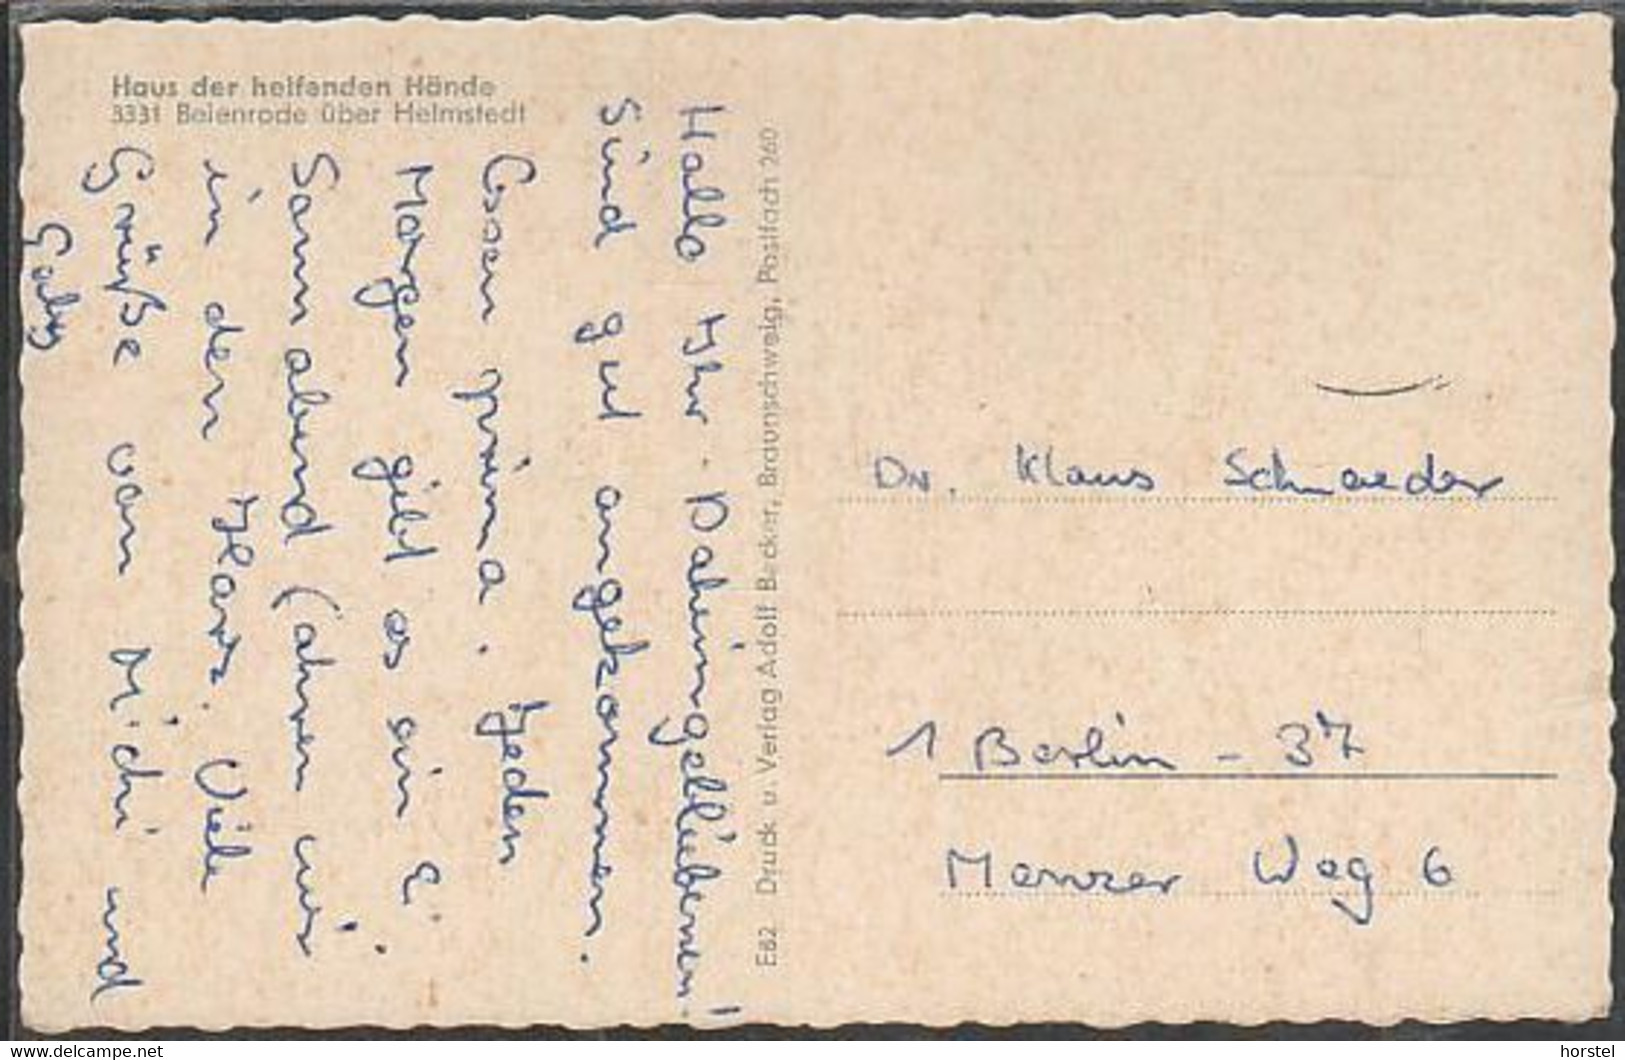 Haus der helfenden Hände
3331 Beienrode über Helmstedt
Hallo Ihr Daheimgebliebenen!
Sind gut angekommen.
Essen prima. Jeden
Morgen gibt es ein Ei.
Sonnabend fahren wir
in den Harz. Viele
Grüße von Michi und
Gaby
E62 Druck u. Verlag Adolf Becker, Braunschweig, Postfach 260
Dr. Klaus Schroeder
1 Berlin - 37
Weg 6
delcampe.net
horstel